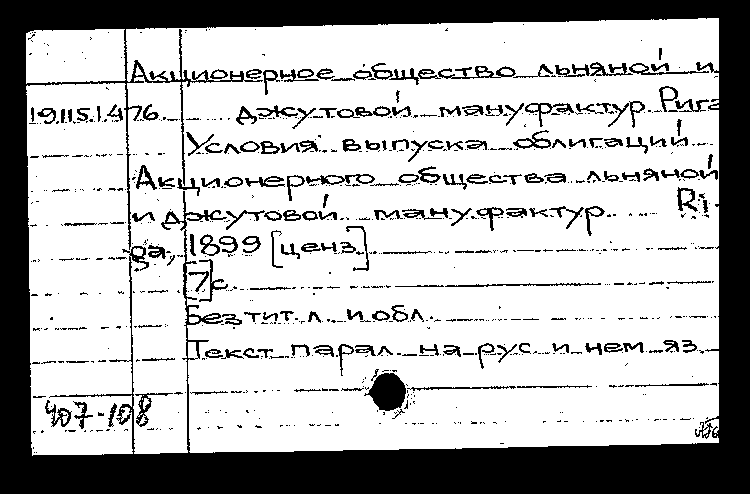 Акционерное общество льняной и
19.115.1.476. джутовой мануфактур. Рига
Условия выпуска облигаций
Акционерного общества льняной
и джутовой мануфактур. Ri-
ga, 1899 [ценз.]
[7]с.
Без тит. л. и обл.
Текст парал. на рус. и нем. яз.
407-108